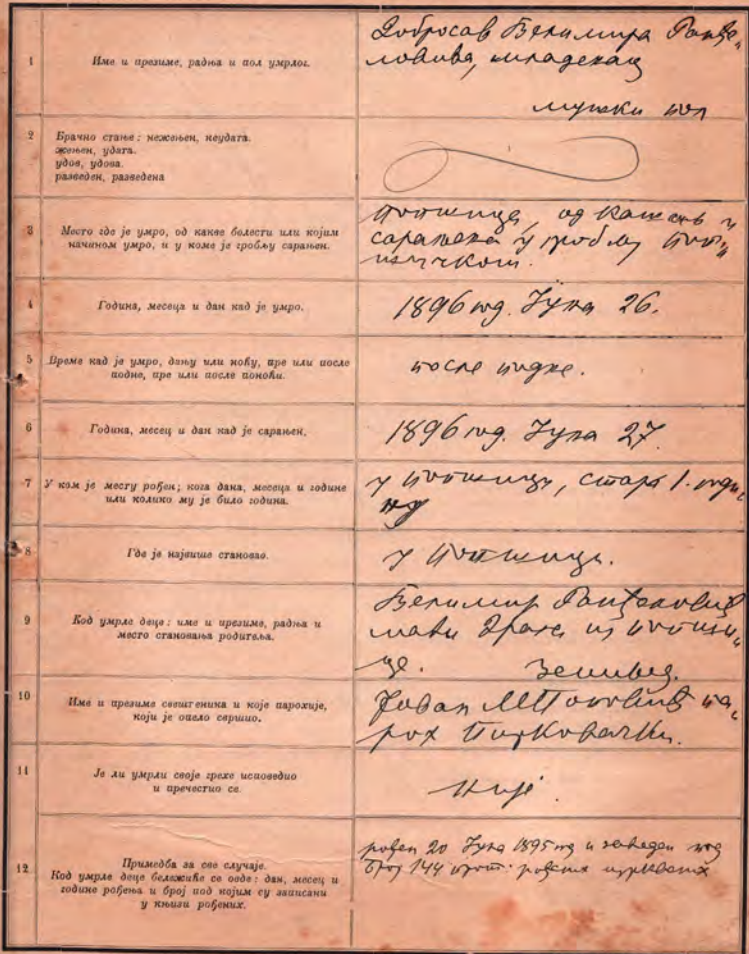 1
Име и презиме, радња и пол умрлог.
Добросав Велимира Ранђе„
ловића, младенац
мушки пол
2
Брачно стање: нежењен, неудата.
жењен, удата.
удов, удова.
разведен, разведена
3
Место где је умро, од какве болести или којим
начином умро, и у коме је гробљу сарањен.
од кашља и
сарањена у гробљу
4
Година, месеца и дан кад је умро.
1896 год. Јула 26.
5
Време кад је умро, дању или ноћу, пре или после
подне, пре или после поноћи.
после подне.
6
Година, месец и дан кад је сарањен.
1896 год. Јула 27.
7
У ком је месту рођен; кога дана, месеца и године
или колико му је било година.
у, стара 1. годи„
ну
8
Где је највише становао.
у
9
Код умрле деце: име и презиме, радња и
место становања родитеља.
Велимир Ранђеловић
мати из
це.
10
Име и презиме свештеника и које парохије,
који је опело свршио.
Јован па„
рох
11
Је ли умрли своје грехе исповедио
и пречестио се.
Није.
12
Примедба за све случаје.
Код умрле деце бележиће се овде: дан, месец и
године рођења и број под којим су записани
у књизи рођених.
рођен 20 Јула 1895 год и заведен под
број 144 прот. рођених црквених